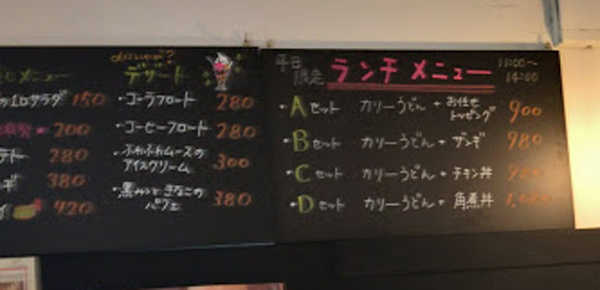 メニュー
サラダ 150
200
280
380
420
dessert?
デザート
・コーラフロート 280
・コーヒーフロート 280
・ふわふわムースの
アイスクリーム 300
・黒みつときなこの
パフェ 380
平日
限定
ランチメニュー
11:00～
14:00
・Aセット カリーうどん+お任せ
トッピング 900
・Bセット カリーうどん+ザンギ 980
・Cセット カリーうどん+チキン丼
・Dセット カリーうどん+角煮丼